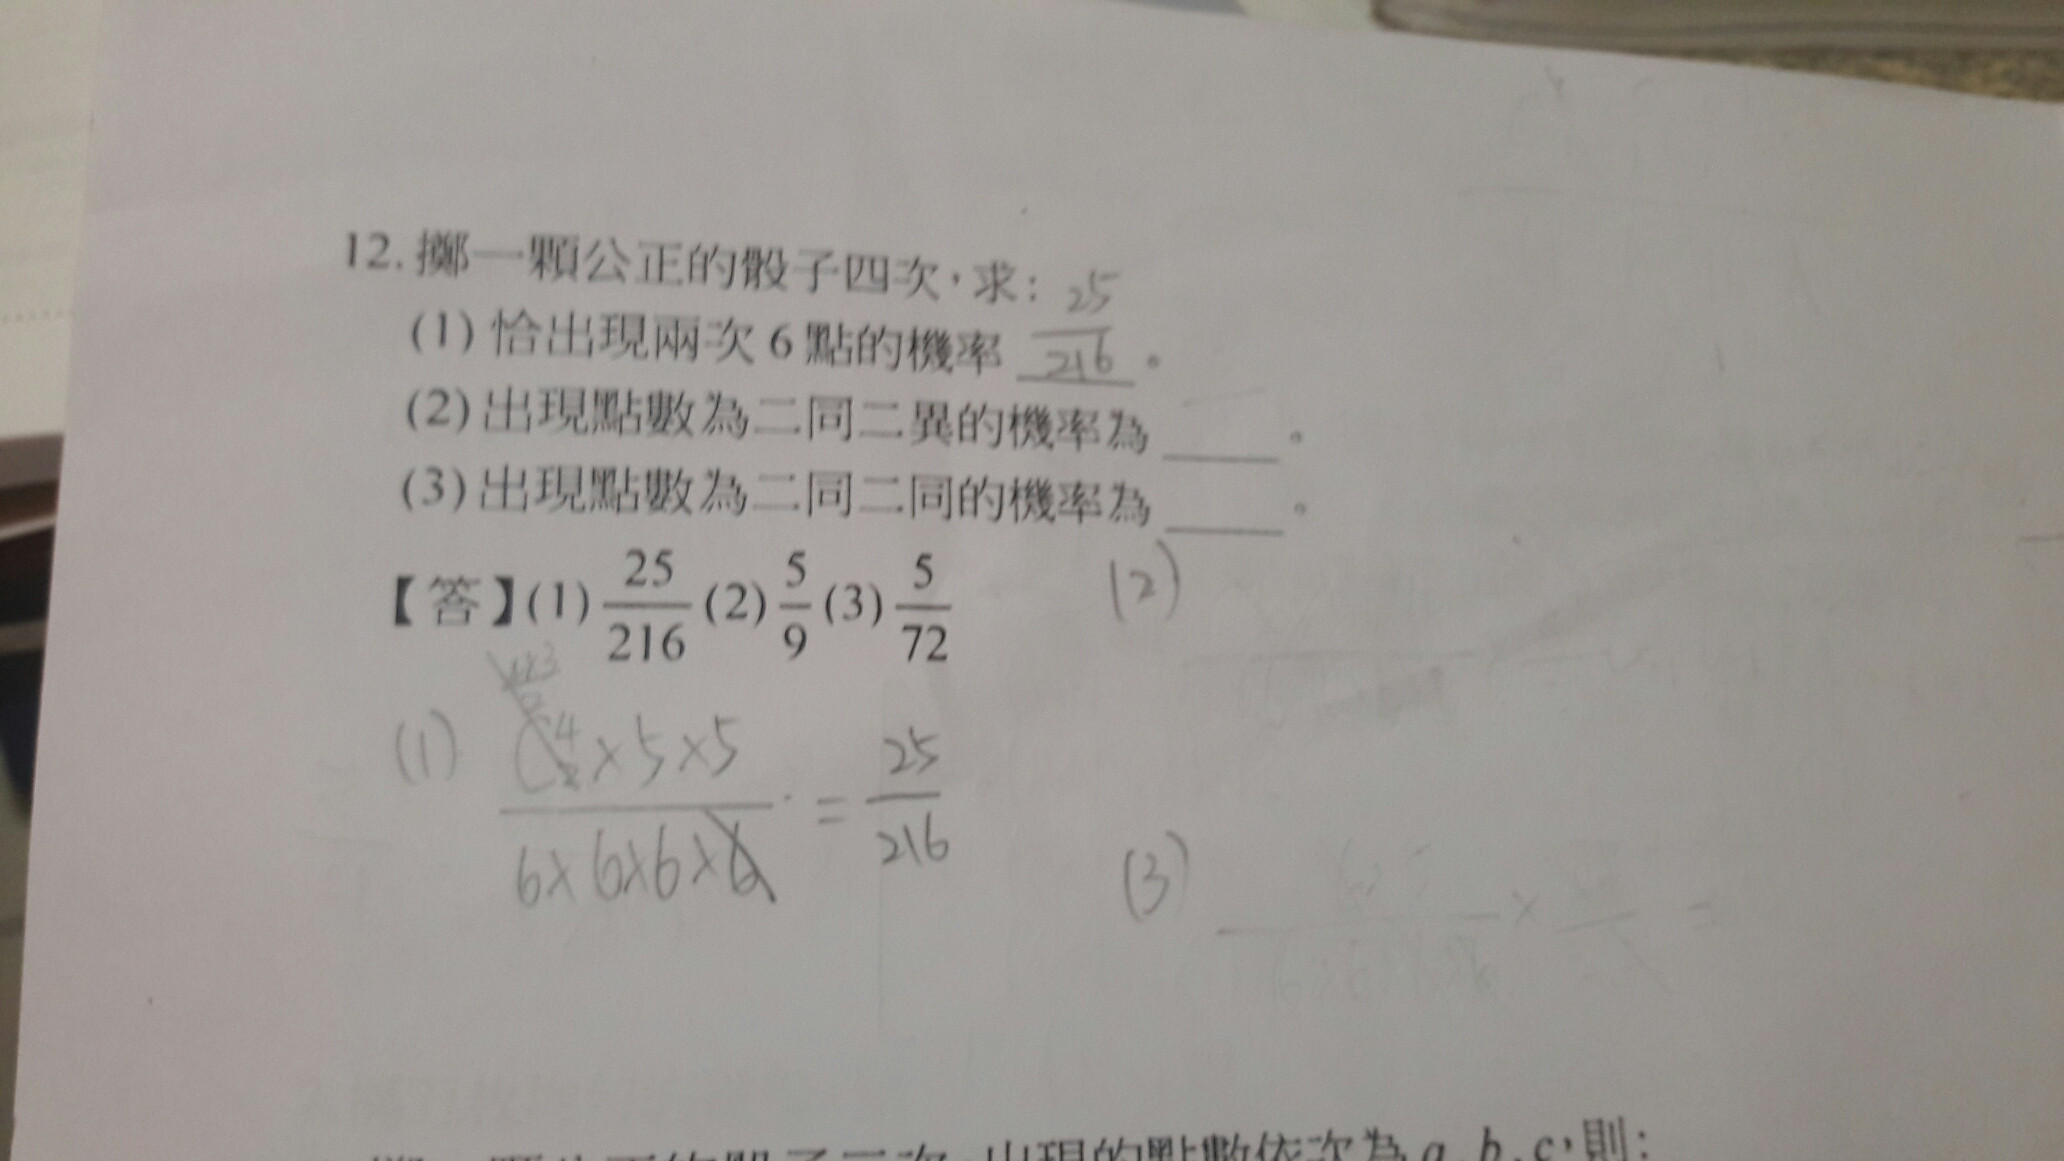 12. 擲一顆公正的骰子四次，求：
(1) 恰出現兩次 6 點的機率 25/216 。
(2) 出現點數為二同二異的機率為____。
(3) 出現點數為二同二同的機率為____。
【答】(1) 25/216 (2) 5/9 (3) 5/72
(2)
(1) C⁴₂×5×5 / 6×6×6×6 = 25/216
(3)
出現的點數依次為 a, b, c，則：